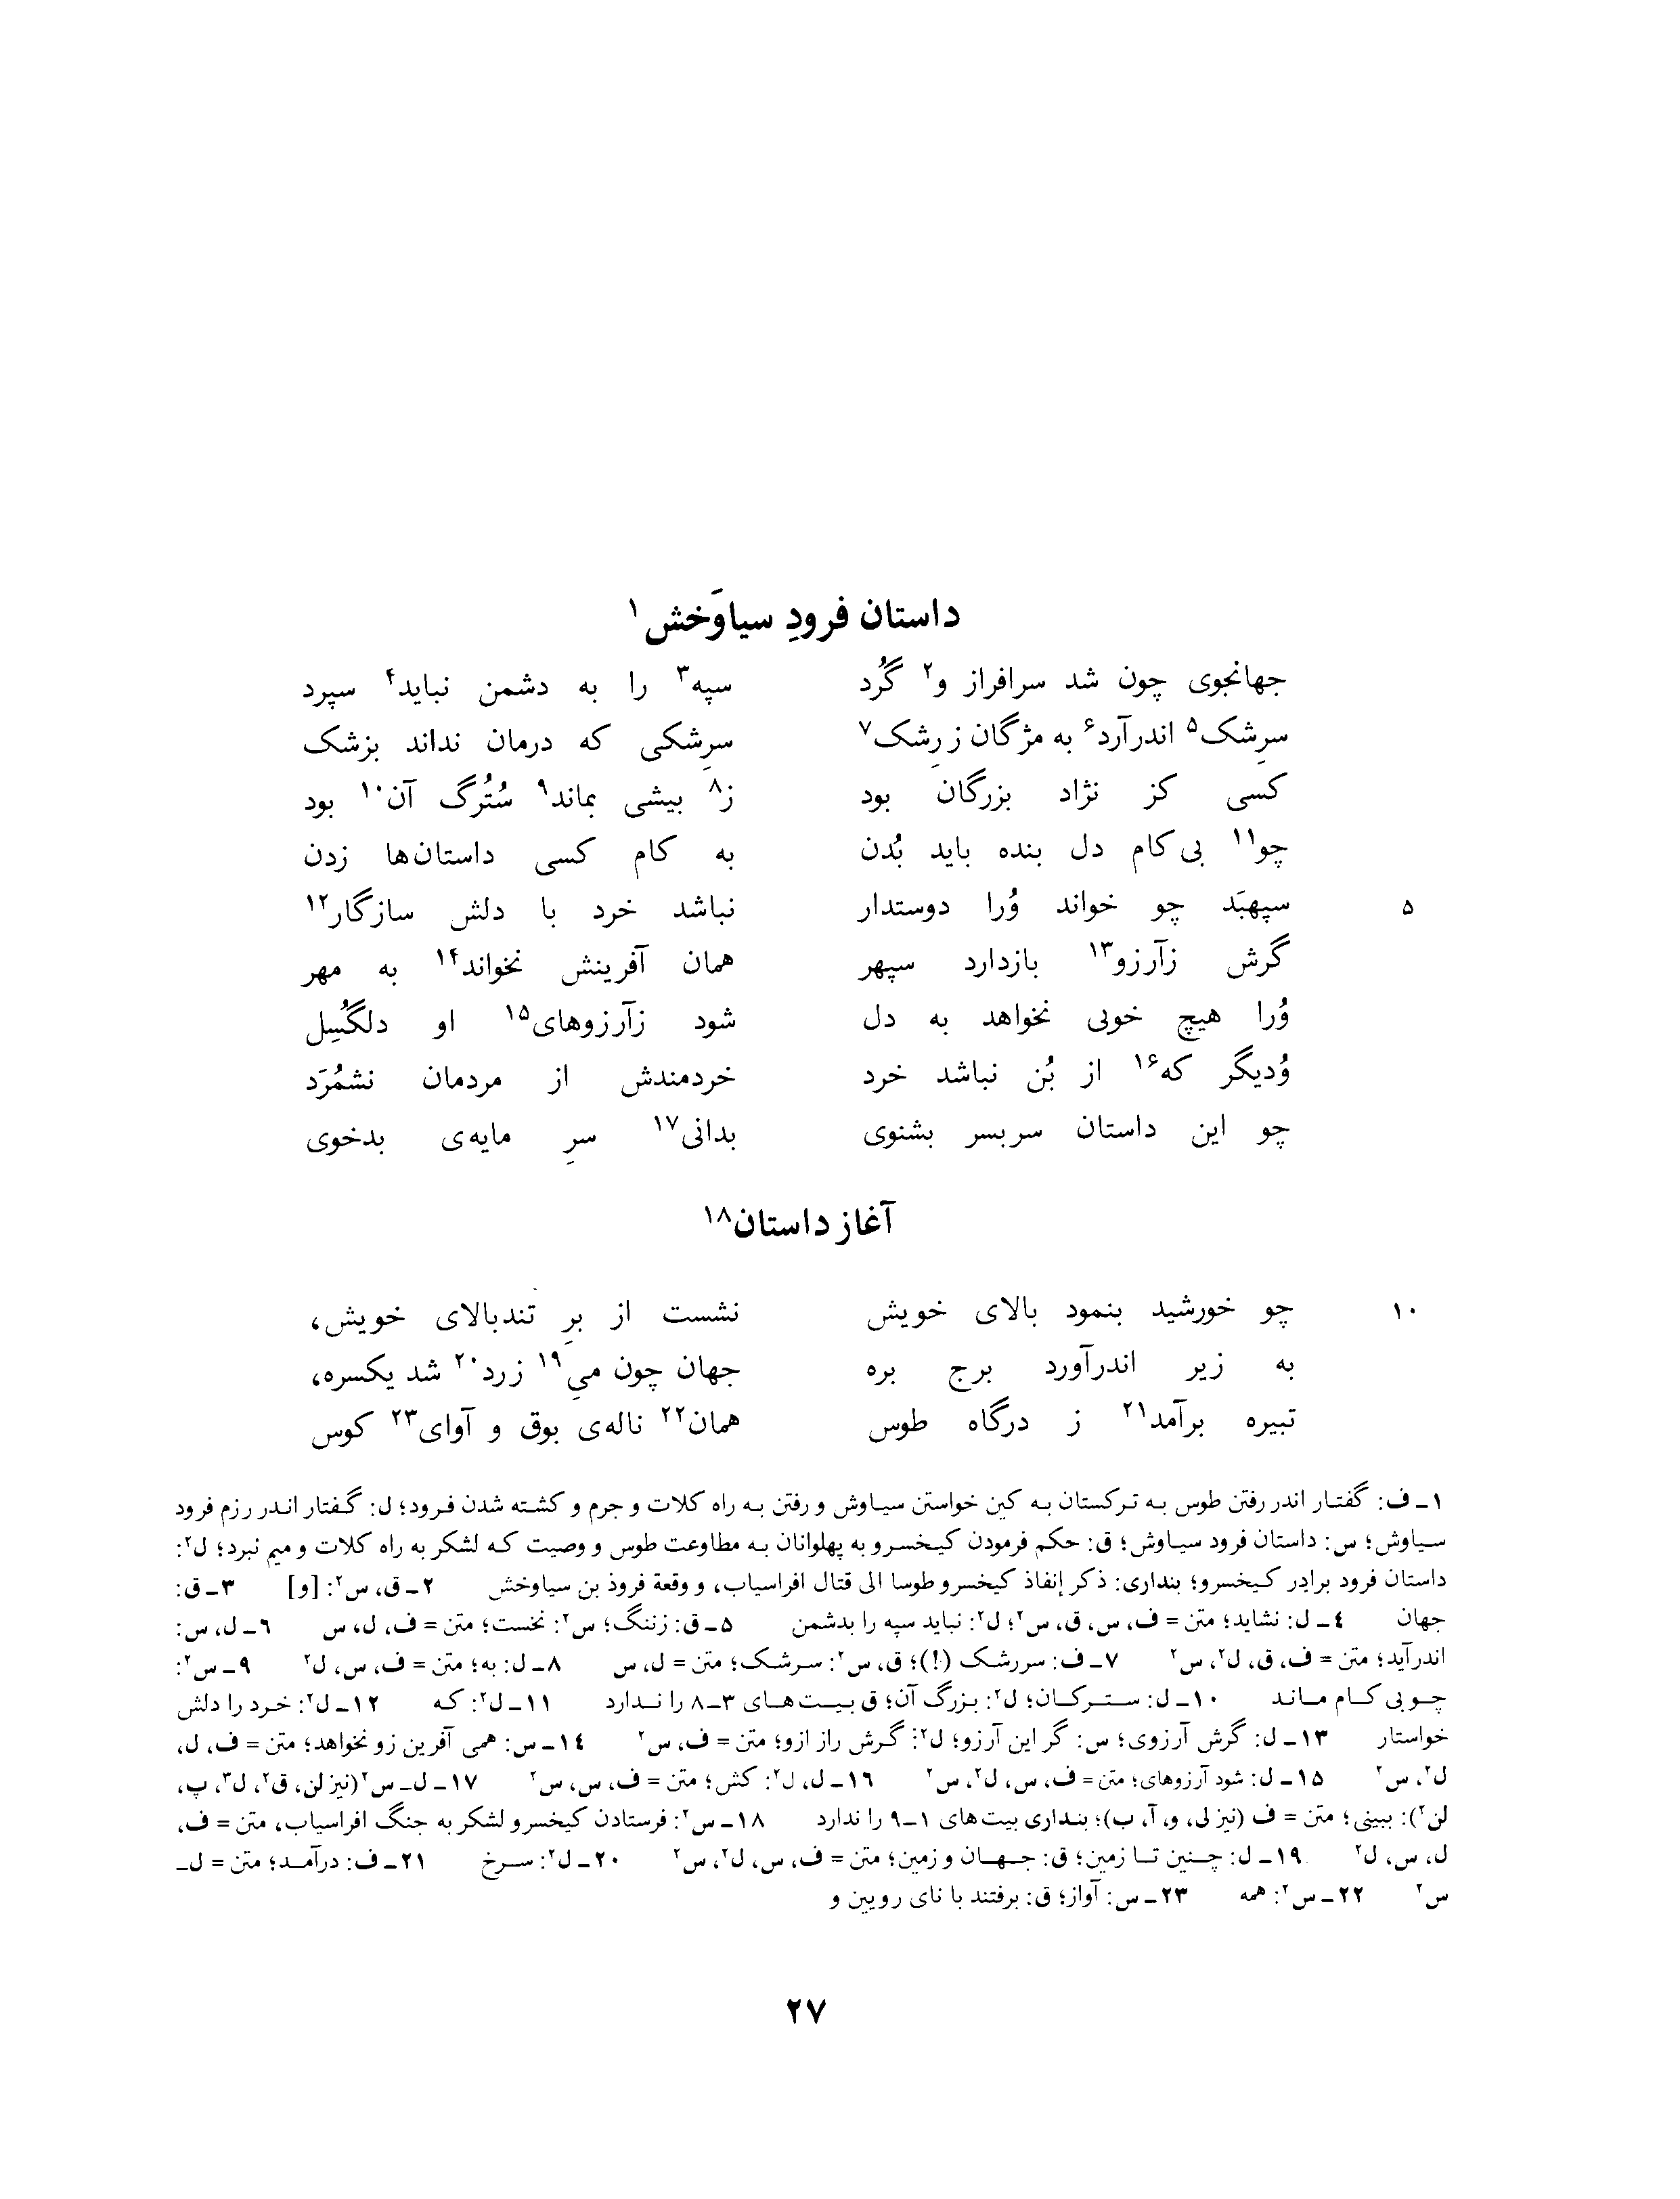 داستان فرودِ سیاوَخش ۱
جهانجوی چون شد سرافراز و۲ گُرد سپه۳ را به دشمن نباید۴ سپرد
سرِشک۵ اندرآرد۶ به مژگان ز رِشک۷ سرِشکی که درمان نداند بزشک
کسی کز نژاد بزرگان بود ز۸ بیشی بماند۹ سُتُرگ آن۱۰ بود
چو۱۱ بی کام دل بنده باید بُدن به کام کسی داستان‌ها زدن
۵ سپهبَد چو خواند وُرا دوستدار نباشد خرد با دلش سازگار۱۲
گرش زآرزو۱۳ بازدارد سپهر همان آفرینش نخواند۱۴ به مهر
وُرا هیچ خوبی نخواهد به دل شود زآرزوهای۱۵ او دلگُسِل
وُدیگر که۱۶ از بُن نباشد خرد خردمندش از مردمان نشمُرَد
چو این داستان سربسر بشنوی بدانی۱۷ سرِ مایه‌ی بدخوی
آغاز داستان۱۸
۱۰ چو خورشید بنمود بالای خویش نشست از برِ تندبالای خویش،
به زیر اندرآورد برج بره جهان چون میِ۱۹ زرد۲۰ شد یکسره،
تبیره برآمد۲۱ ز درگاه طوس همان۲۲ ناله‌ی بوق و آوای۲۳ کوس
۱ـ ف: گفتار اندر رفتن طوس به ترکستان به کین خواستن سیاوش و رفتن به راه کلات و جرم و کشته شدن فرود؛ ل: گفتار اندر رزم فرود
سیاوش؛ س: داستان فرود سیاوش؛ ق: حکم فرمودن کیخسرو به پهلوانان به مطاوعت طوس و وصیت که لشکر به راه کلات و میم نبرد؛ ل۲:
داستان فرود برادِر کیخسرو؛ بنداری: ذکر إنفاذ کیخسرو طوسا الی قتال افراسیاب، و وقعة فروذ بن سیاوخش ۲ـ ق، س۲: [و] ۳ـ ق:
جهان ٤ـ ل: نشاید؛ متن = ف، س، ق، س۲؛ ل۲: نباید سپه را بدشمن ۵ـ ق: زننگ؛ س۲: نخست؛ متن = ف، ل، س ٦ـ ل، س:
اندرآید؛ متن = ف، ق، ل۲، س۲ ۷ـ ف: سررشک (!)؛ ق، س۲: سرشک؛ متن = ل، س ۸ـ ل: به؛ متن = ف، س، ل۲ ۹ـ س۲:
چو بی کام ماند ۱۰ـ ل: سترکان؛ ل۲: بزرگ آن؛ ق بیت‌های ۳ـ۸ را ندارد ۱۱ـ ل۲: که ۱۲ـ ل۲: خرد را دلش
خواستار ۱۳ـ ل: گرش آرزوی؛ س: گر این آرزو؛ ل۲: گرش راز ازو؛ متن = ف، س۲ ۱٤ـ س: همی آفرین زو نخواهد؛ متن = ف، ل،
ل۲، س۲ ۱۵ـ ل: شود آرزوهای؛ متن = ف، س، ل۲، س۲ ۱٦ـ ل، ل۲: کش؛ متن = ف، س، س۲ ۱۷ـ ل ـ س۲ (نیز لن، ق۲، ل۳، پ،
لن۲): ببینی؛ متن = ف (نیز لی، و، آ، ب)؛ بنداری بیت‌های ۱ـ۹ را ندارد ۱۸ـ س۲: فرستادن کیخسرو لشکر به جنگ افراسیاب، متن = ف،
ل، س، ل۲ ۱۹ـ ل: چنین تا زمین؛ ق: جهان و زمین؛ متن = ف، س، ل۲، س۲ ۲۰ـ ل۲: سرخ ۲۱ـ ف: درآمد؛ متن = ل ـ
س۲ ۲۲ـ س۲: همه ۲۳ـ س: آواز؛ ق: برفتند با نای رویین و
۲۷